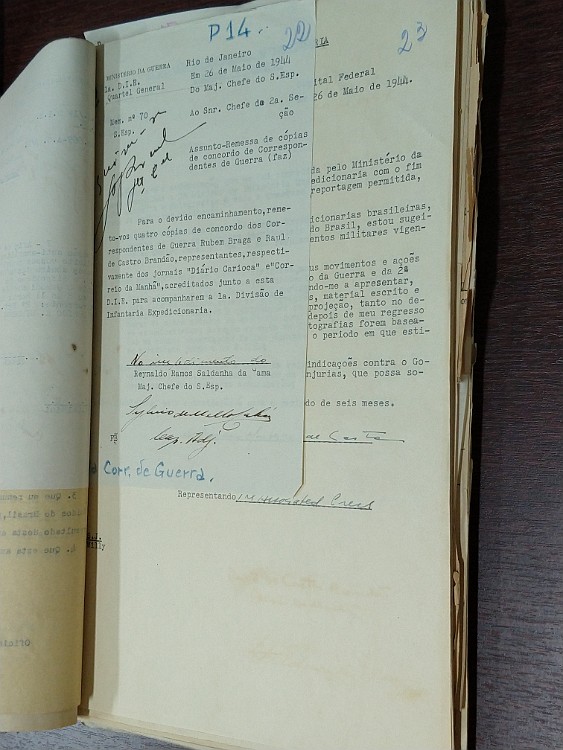 P14.
22
23
MINISTERIO DA GUERRA
1a. D.I.E.
Quartel General
Rio de Janeiro
Em 26 de Maio de 1944
Do Maj. Chefe do S.Esp.
Mem. nº 70
S.Esp.
Ao Snr. Chefe da 2a. Se-
ção
Assunto-Remessa de cópias
de concordo de Correspon-
dentes de Guerra (faz)
Para o devido encaminhamento,reme-
to-vos quatro cópias de concordo dos Cor-
respondentes de Guerra Rubem Braga e Raul
de Castro Brandão,representantes,respecti-
vamente dos jornais "Diário Carioca" e"Cor-
reio da Manhã",acreditados junto a esta
D.I.E. para acompanharem a 1a. Divisão de
Infantaria Expedicionaria.
No impedimento do
Reynaldo Ramos Saldanha da Gama
Maj. Chefe do S.Esp.
Cap. Adj.
Corr. de Guerra.
RIA
ital Federal
26 de Maio de 1944.
da pelo Ministério da
edicionaria com o fim
reportagem permitida,
icionarias brasileiras,
do Brasil, estou sugei-
entos militares vigen-
us movimentos e ações
o da Guerra e da 2ª
ndo-me a apresentar,
s, material escrito e
projeção, tanto no de-
depois de meu regresso
tografias forem basea-
o periodo em que esti-
indicações contra o Go-
njurias, que possa so-
do de seis meses.
Representando